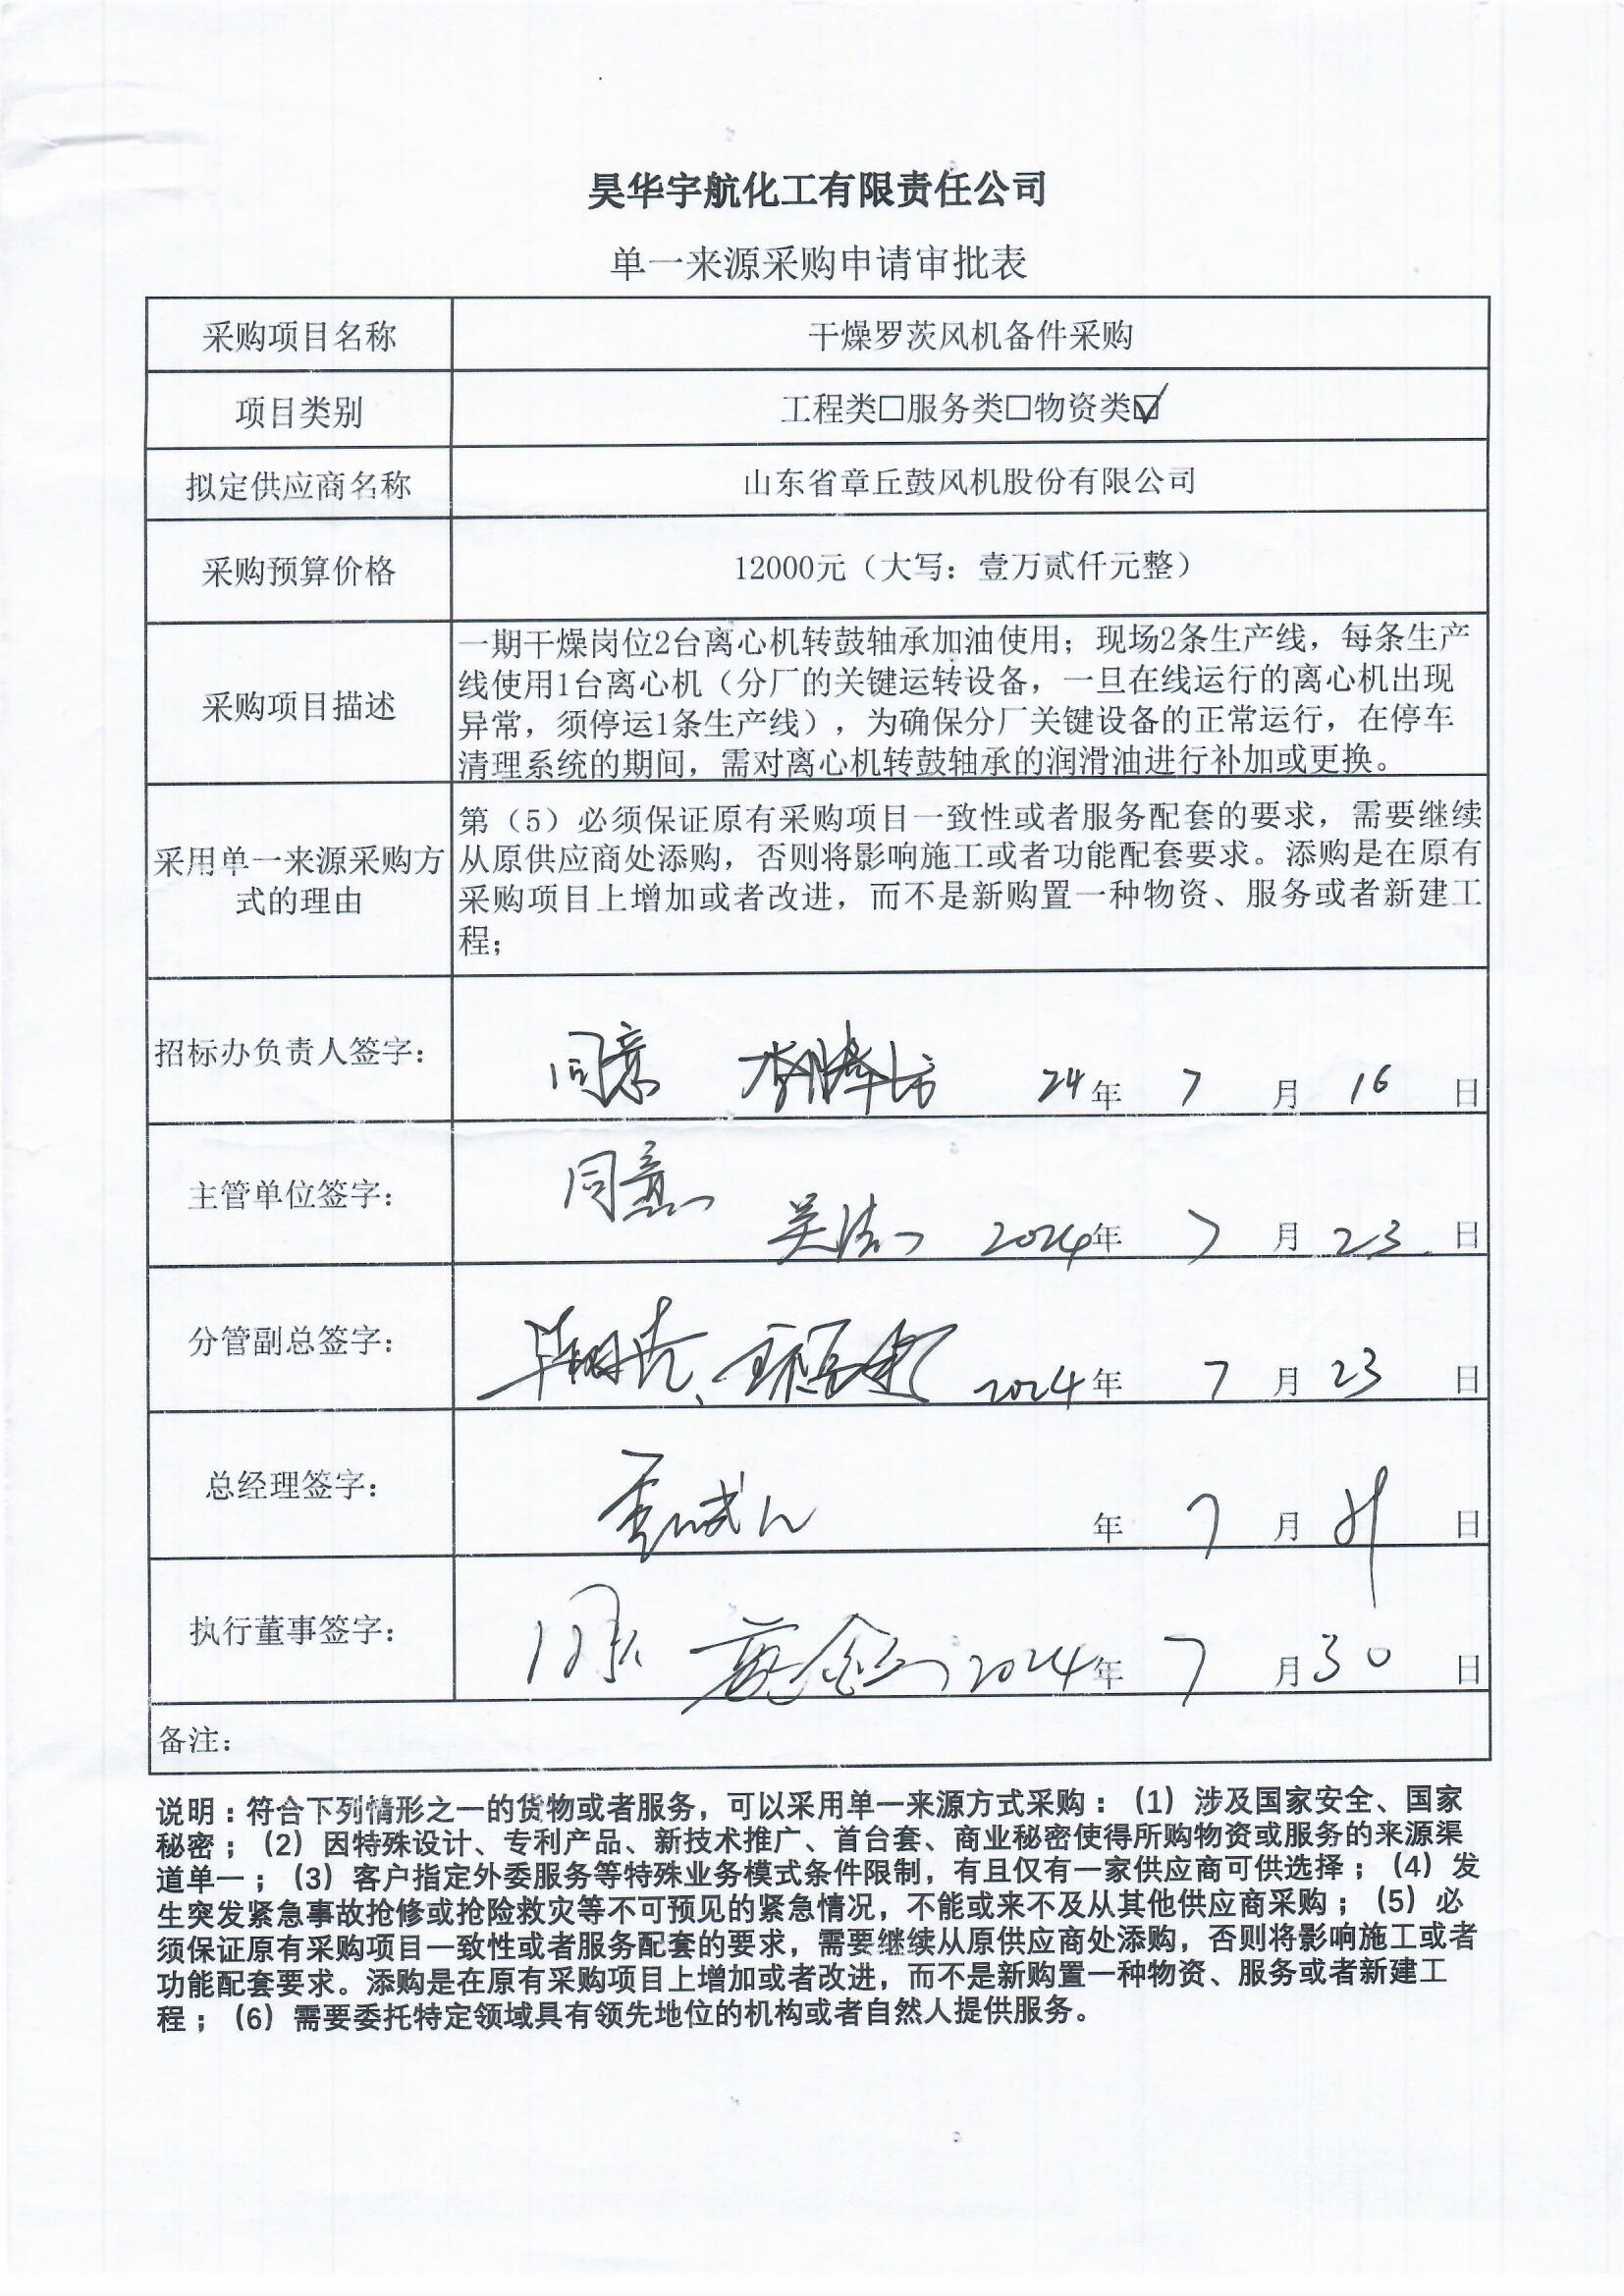 昊华宇航化工有限责任公司
单一来源采购申请审批表
采购项目名称 干燥罗茨风机备件采购
项目类别 工程类□服务类□物资类☑
拟定供应商名称 山东省章丘鼓风机股份有限公司
采购预算价格 12000元（大写：壹万贰仟元整）
采购项目描述
一期干燥岗位2台离心机转鼓轴承加油使用；现场2条生产线，每条生产
线使用1台离心机（分厂的关键运转设备，一旦在线运行的离心机出现
异常，须停运1条生产线），为确保分厂关键设备的正常运行，在停车
清理系统的期间，需对离心机转鼓轴承的润滑油进行补加或更换。
采用单一来源采购方
式的理由
第（5）必须保证原有采购项目一致性或者服务配套的要求，需要继续
从原供应商处添购，否则将影响施工或者功能配套要求。添购是在原有
采购项目上增加或者改进，而不是新购置一种物资、服务或者新建工
程；
招标办负责人签字： 同意 24年 7 月 16 日
主管单位签字： 同意
2024年 7 月 23 日
分管副总签字： 2024年 7 月 23 日
总经理签字： 年 7 月 日
执行董事签字： 2024年 7 月 30 日
备注：
说明：符合下列情形之一的货物或者服务，可以采用单一来源方式采购：（1）涉及国家安全、国家
秘密；（2）因特殊设计、专利产品、新技术推广、首台套、商业秘密使得所购物资或服务的来源渠
道单一；（3）客户指定外委服务等特殊业务模式条件限制，有且仅有一家供应商可供选择；（4）发
生突发紧急事故抢修或抢险救灾等不可预见的紧急情况，不能或来不及从其他供应商采购；（5）必
须保证原有采购项目一致性或者服务配套的要求，需要继续从原供应商处添购，否则将影响施工或者
功能配套要求。添购是在原有采购项目上增加或者改进，而不是新购置一种物资、服务或者新建工
程；（6）需要委托特定领域具有领先地位的机构或者自然人提供服务。